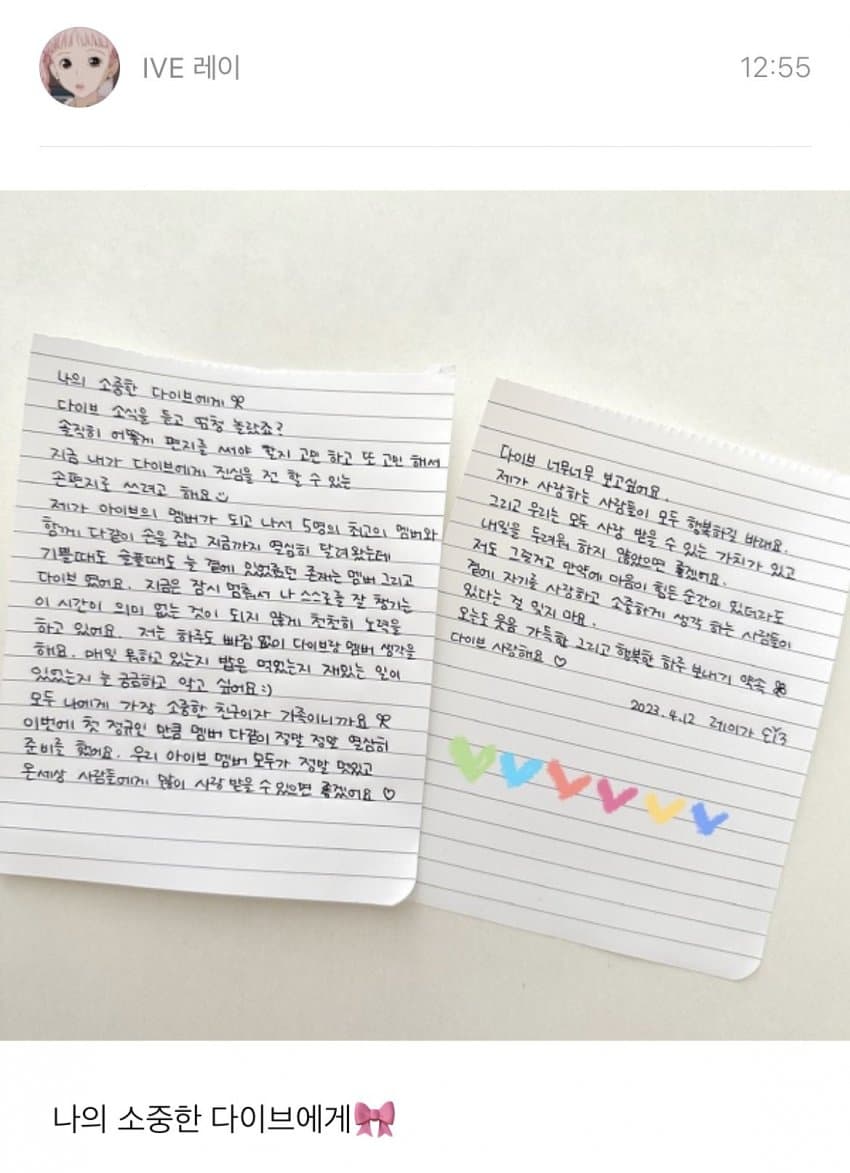 IVE 레이
12:55
나의 소중한 다이브에게
다이브 소식을 듣고 엄청 놀랐죠?
솔직히 어떻게 편지를 써야 할지 고민 하고 또 고민 해서
지금 내가 다이브에게 진심을 전 할 수 있는
손편지로 쓰려고 해요
제가 아이브의 멤버가 되고 나서 5명의 최고의 멤버와
함께 다같이 손을 잡고 지금까지 열심히 달려왔는데
기쁠때도 슬플때도 늘 곁에 있었던 존재는 멤버 그리고
다이브 였어요. 지금은 잠시 멈춰서 나 스스로를 잘 챙기는
이 시간이 의미 없는 것이 되지 않게 천천히 노력을
하고 있어요. 저는 하루도 빠짐 없이 다이브랑 멤버 생각을
해요. 매일 뭐하고 있는지 밥은 먹었는지 재밌는 일이
있었는지 늘 궁금하고 알고 싶어요:)
모두 나에게 가장 소중한 친구이자 가족이니까요
이번에 첫 정규인 만큼 멤버 다같이 정말 정말 열심히
준비를 했어요. 우리 아이브 멤버 모두가 정말 멋있고
온세상 사람들에게 많이 사랑 받을 수 있으면 좋겠어요 ♡
다이브 너무너무 보고싶어요.
제가 사랑하는 사람들이 모두 행복하길 바래요.
그리고 우리는 모두 사랑 받을 수 있는 가치가 있고
내일을 두려워 하지 않았으면 좋겠어요.
저도 그럴거고 만약에 마음이 힘든 순간이 있더라도
곁에 자기를 사랑하고 소중하게 생각 하는 사람들이
있다는 걸 잊지 마요.
오늘도 웃음 가득한 그리고 행복한 하루 보내기 약속
다이브 사랑해요 ♡
2023.4.12 레이가
나의 소중한 다이브에게🎀